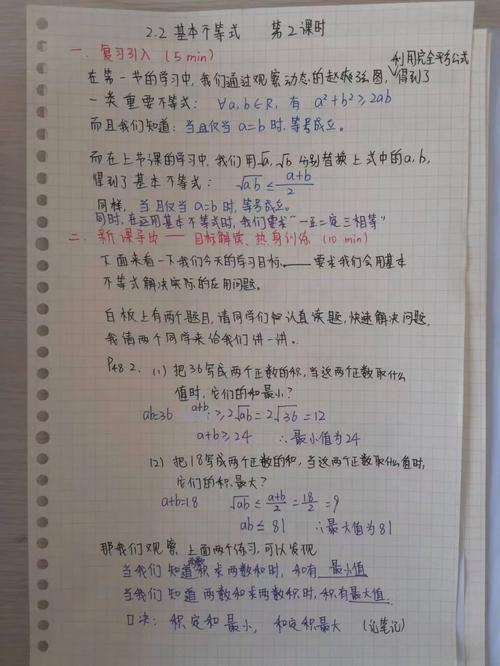 2.2 基本不等式 第2课时
一、复习引入 (5 min)
利用完全平方公式
在第一节的学习中,我们通过观察动态的赵爽弦图,得到了
一类重要不等式: ∀a,b∈R, 有 a²+b²≥2ab
而且我们知道:当且仅当 a=b 时,等号成立。
而在上节课的学习中,我们用√a,√b 分别替换上式中的a,b,
得到了基本不等式: √ab ≤ (a+b)/2
同样,当且仅当 a=b 时,等号成立。
同时,在运用基本不等式时,我们要求"一正二定三相等"
二、新课导出 —— 目标解读、热身训练 (10 min)
下面来看一下我们今天的学习目标. —— 要求我们会用基本
不等式解决实际的应用问题。
白板上有两个题目,请同学们认真读题,快速解决问题.
我请两个同学来给我们讲一讲。
P48 2. (1) 把36写成两个正数的积,当这两个正数取什么
值时,它们的和最小?
ab=36 a+b ≥ 2√ab = 2√36 = 12
a+b ≥ 24 ∴最小值为24
(2) 把18写成两个正数的和,当这两个正数取什么值时,
它们的积最大?
a+b=18 √ab ≤ (a+b)/2 = 18/2 = 9
ab ≤ 81 ∴最大值为81
那我们观察上面两个练习,可以发现
当我们知道两数积求两数和时,和有 最小值
当我们知道两数和求两数积时,积有最大值.
口决: 积定和最小, 和定积最大 (记笔记)